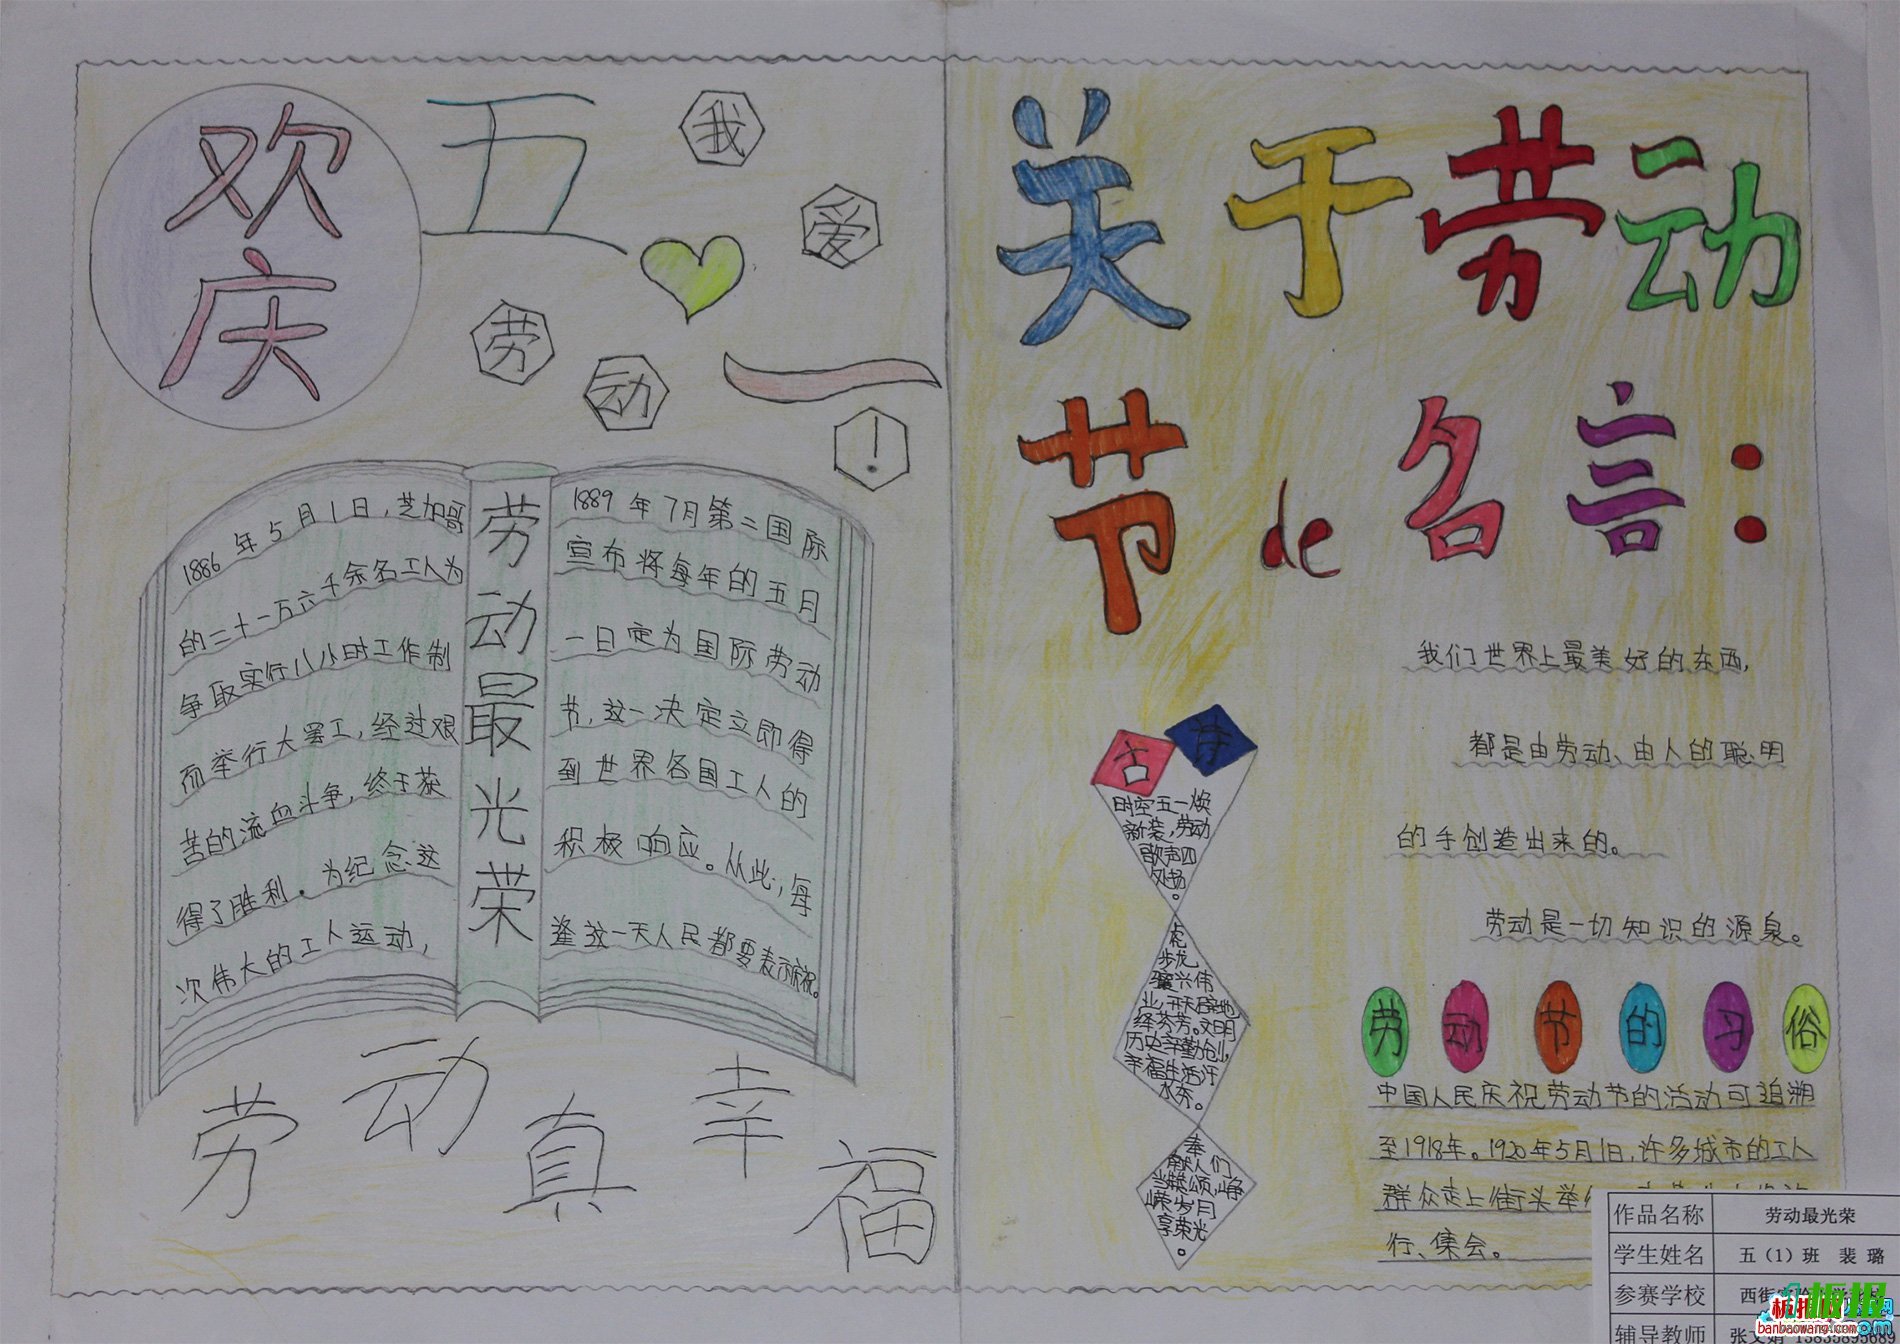 欢庆
五
一
我
爱
劳
动
!
劳动最光荣
1886年5月1日,芝加哥
的二十一万六千余名工人为
争取实行八小时工作制
而举行大罢工,经过艰
苦的流血斗争,终于获
得了胜利。为纪念这
次伟大的工人运动,
1889年7月第二国际
宣布将每年的五月
一日定为国际劳动
节,这一决定立即得
到世界各国工人的
积极响应。从此,每
逢这一天人民都要表示庆祝。
劳动真幸福
关于劳动
节de名言:
我们世界上最美好的东西,
都是由劳动、由人的聪明
的手创造出来的。
劳动是一切知识的源泉。
古诗
时空五一焕
新装,劳动
歌声四
处扬。
虎
步龙
骧兴伟
业,开天辟地
绎芬芳。文明
历史辛勤创,
幸福生活汗
水东。
奉
献人们
当赞颂,峥
嵘岁月
享荣光
。
劳动节的习俗
中国人民庆祝劳动节的活动可追溯
至1918年。1920年5月1日,许多城市的工人
群众走上街头举
行、集会。
作品名称 劳动最光荣
学生姓名 五(1)班 裴 璐
参赛学校 西街
辅导教师
banbaowang.com